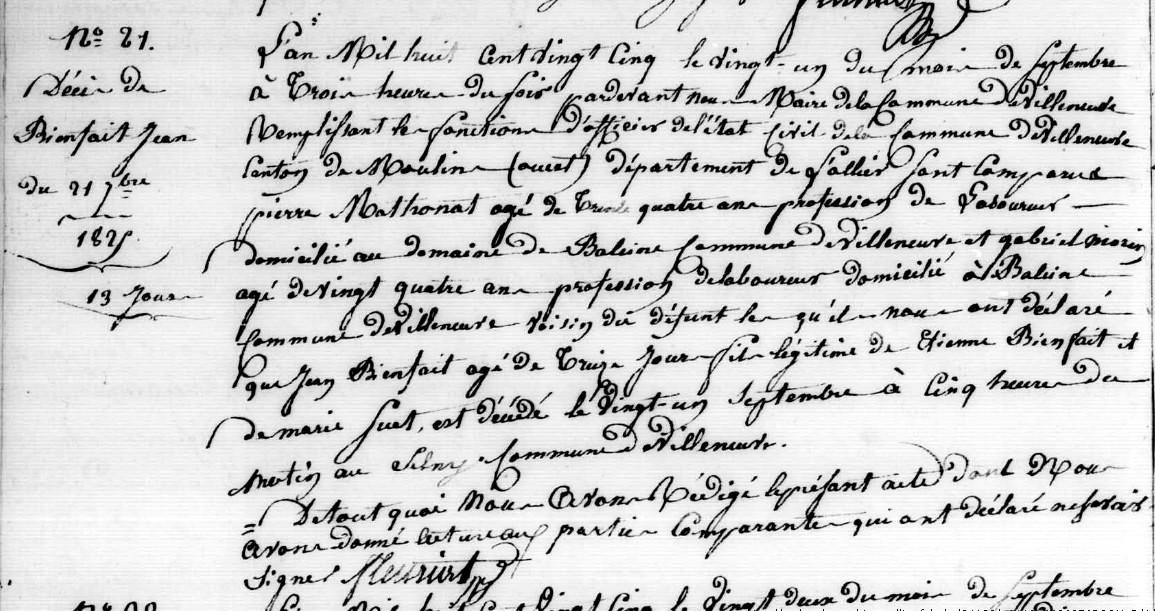 N° 21.
Décès de
Bienfait Jean
du 21 7bre
1825
13 Jours
L'an Mil huit Cent Vingt Cinq le vingt-un du mois de Septembre
à Trois heures du soir pardevant nous Maire de la Commune de Villeneuve
Remplissant les fonctions d'officier de l'état Civil de la Commune de Villeneuve
Canton de Moulins (ouest) département de l'allier sont Comparus
pierre Mathonat agé de Trente quatre ans profession de Laboureur
domicilié au domaine de Baleine Commune de Villeneuve et gabriel morin
agé de vingt quatre ans profession de laboureur domicilié à Baleine
Commune de Villeneuve voisin du défunt les qu'ils nous ont déclaré
que Jean Bienfait agé de Treize Jours fils légitime de Etienne Bienfait et
de marie Suet, est décédé le Vingt-un Septembre à Cinq heures du
Matin au Commune de Villeneuve.
= De tout quoi Nous Avons Rédigé le présent acte dont Nous
Avons donné lecture aux parties Comparantes qui ont déclaré ne savoir
signer
L'an Mil huit Cent Vingt Cinq le Vingt deux du mois de Septembre